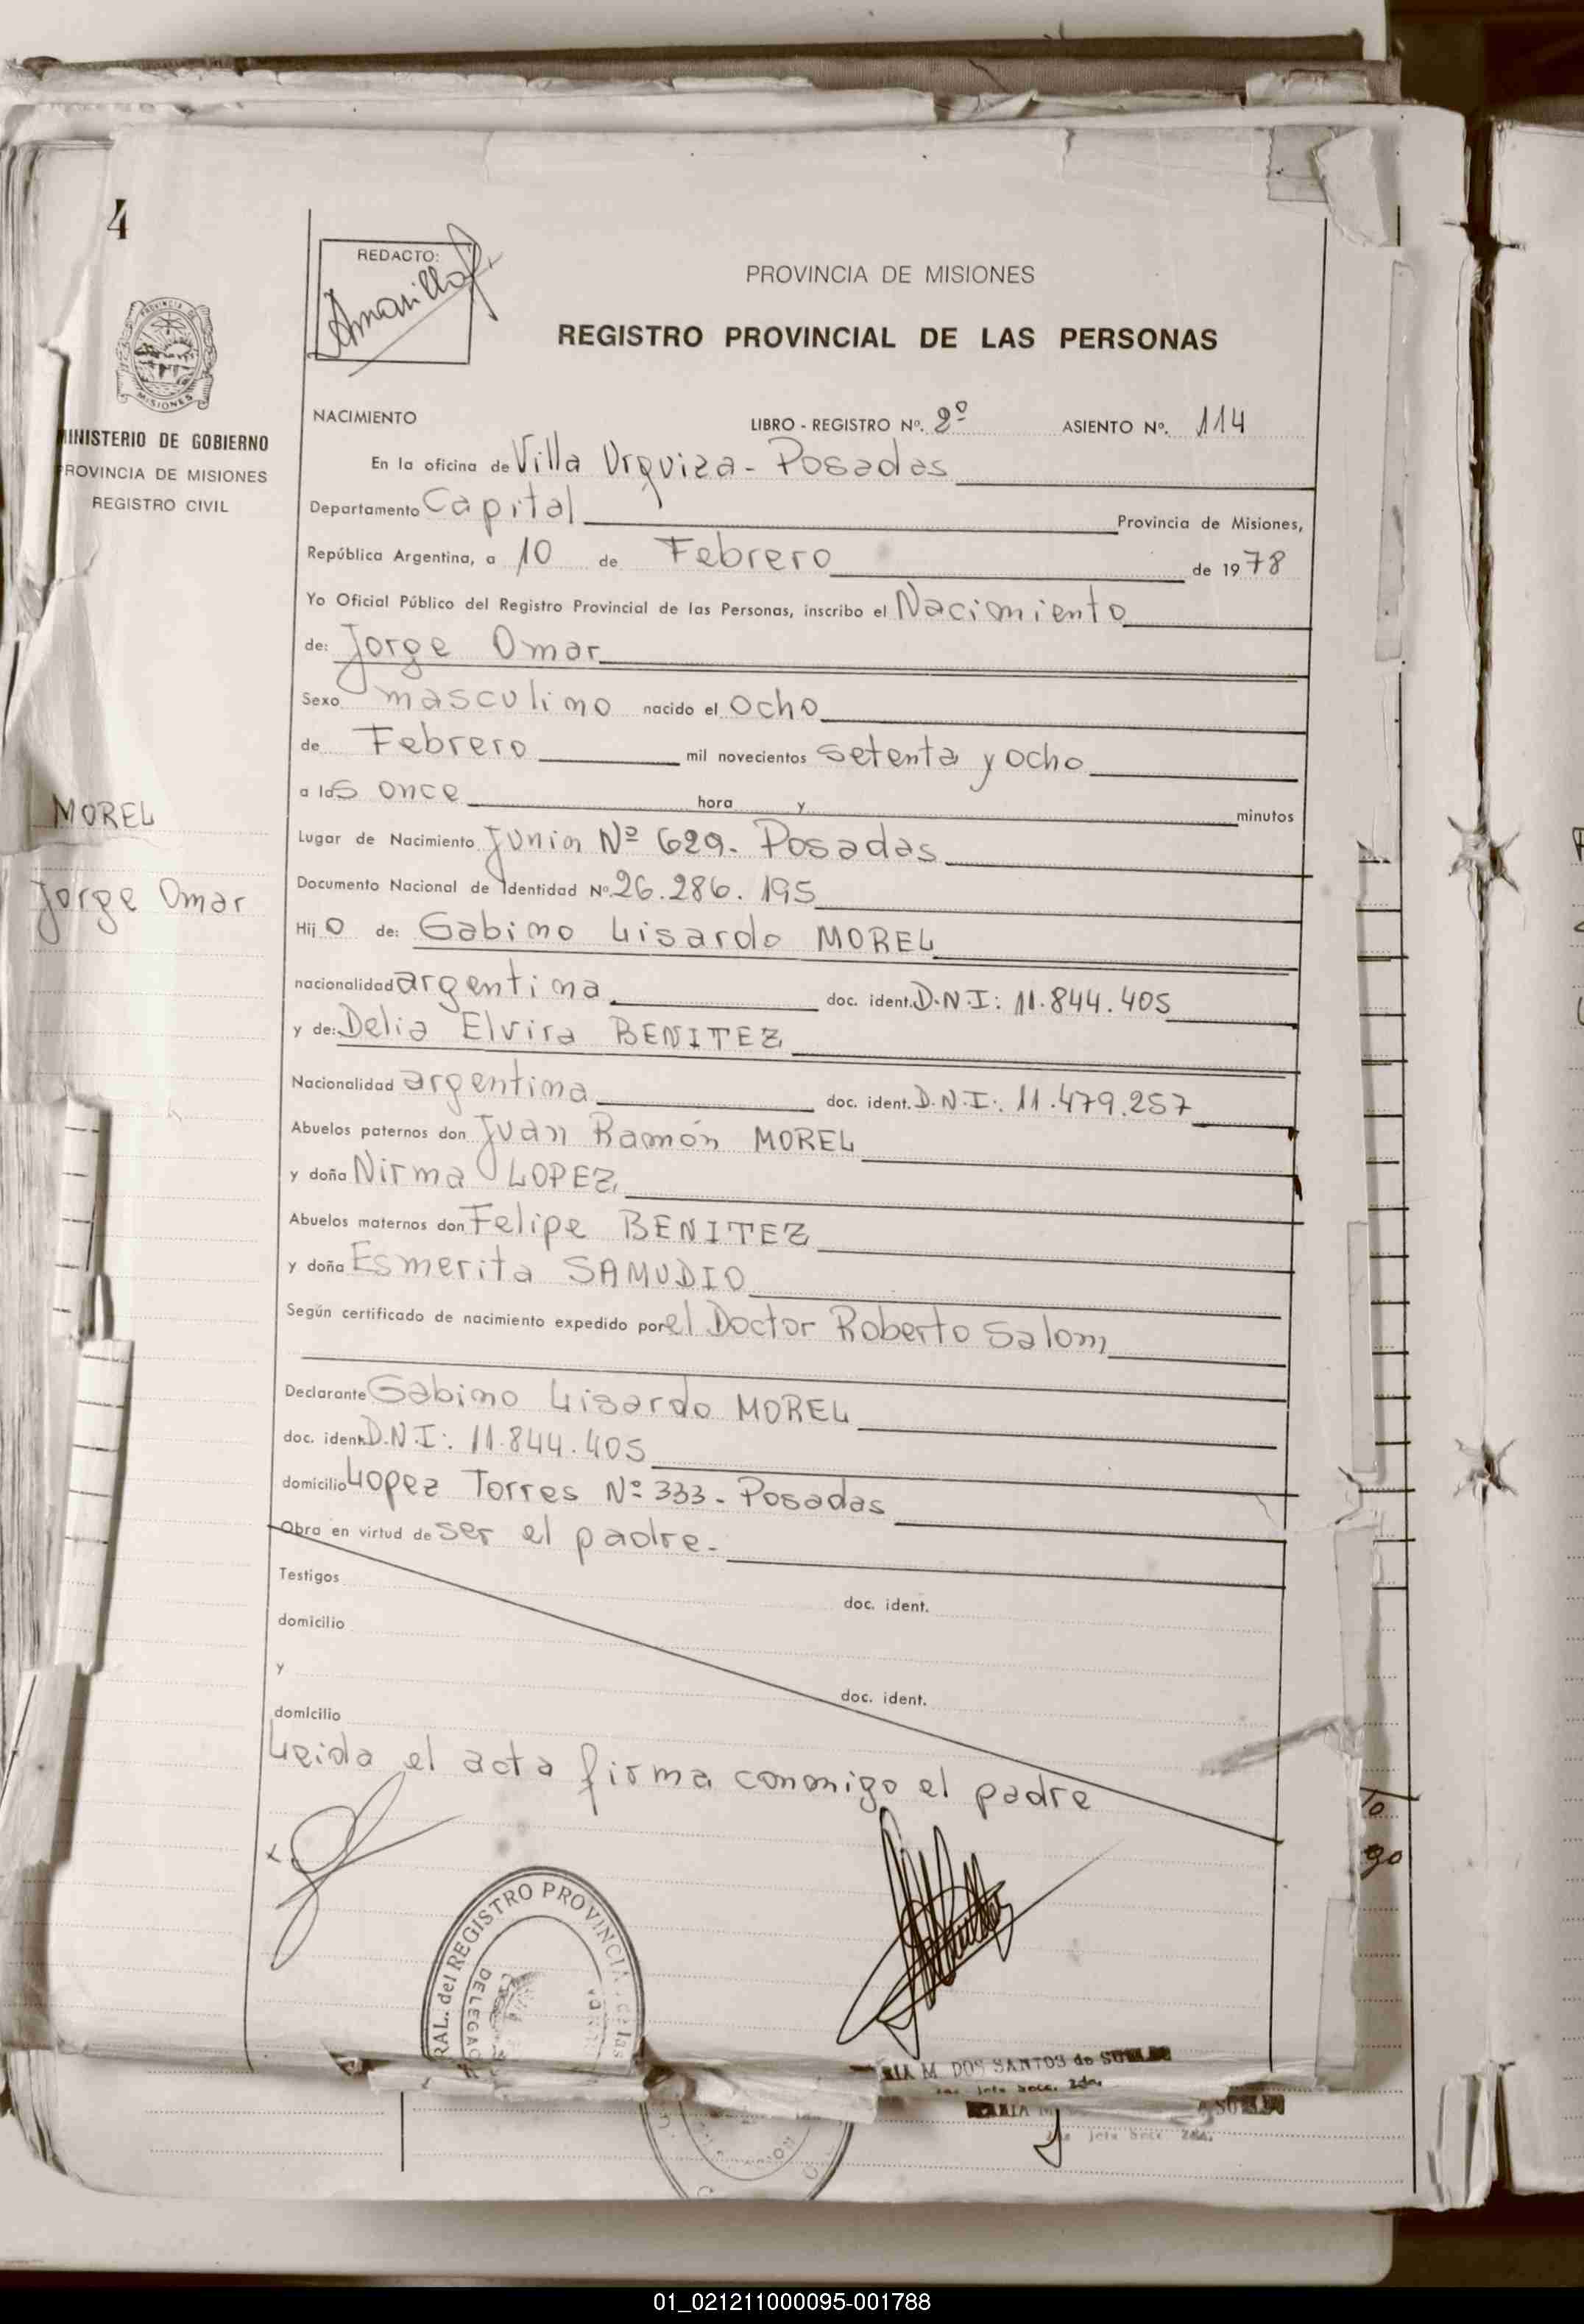 4
REDACTO:
Amarilla
PROVINCIA DE MISIONES
REGISTRO PROVINCIAL DE LAS PERSONAS
PROVINCIA DE
MISIONES
MINISTERIO DE GOBIERNO
PROVINCIA DE MISIONES
REGISTRO CIVIL
NACIMIENTO LIBRO - REGISTRO Nº. 2º ASIENTO Nº. 114
En la oficina de Villa Urquiza - Posadas
Departamento Capital Provincia de Misiones,
República Argentina, a 10 de Febrero de 1978
Yo Oficial Público del Registro Provincial de las Personas, inscribo el Nacimiento
de: Jorge Omar
Sexo masculino nacido el ocho
de Febrero mil novecientos setenta y ocho
a las once hora y minutos
MOREL
Jorge Omar
Lugar de Nacimiento Junin Nº 629. Posadas
Documento Nacional de Identidad Nº 26.286.195
Hijo de: Gabino Lisardo MOREL
nacionalidad argentina doc. ident. D.N.I: 11.844.405
y de: Delia Elvira BENITEZ
Nacionalidad argentina doc. ident. D.N.I: 11.479.257
Abuelos paternos don Juan Ramón MOREL
y doña Nirma LOPEZ
Abuelos maternos don Felipe BENITEZ
y doña Esmerita SAMUDIO
Según certificado de nacimiento expedido por el Doctor Roberto Salom
Declarante Gabino Lisardo MOREL
doc. ident. D.N.I: 11.844.405
domicilio Lopez Torres Nº 333 - Posadas
Obra en virtud de ser el padre.
Testigos doc. ident.
domicilio
y doc. ident.
domicilio
Leida el acta firma conmigo el padre
To
go
RAL. del REGISTRO PROVINCIAL de las
DELEGAC
RIA M. DOS SANTOS de
Jefa Secc. 2da.
MARIA M
Jefa Secc 2da.
01_021211000095-001788